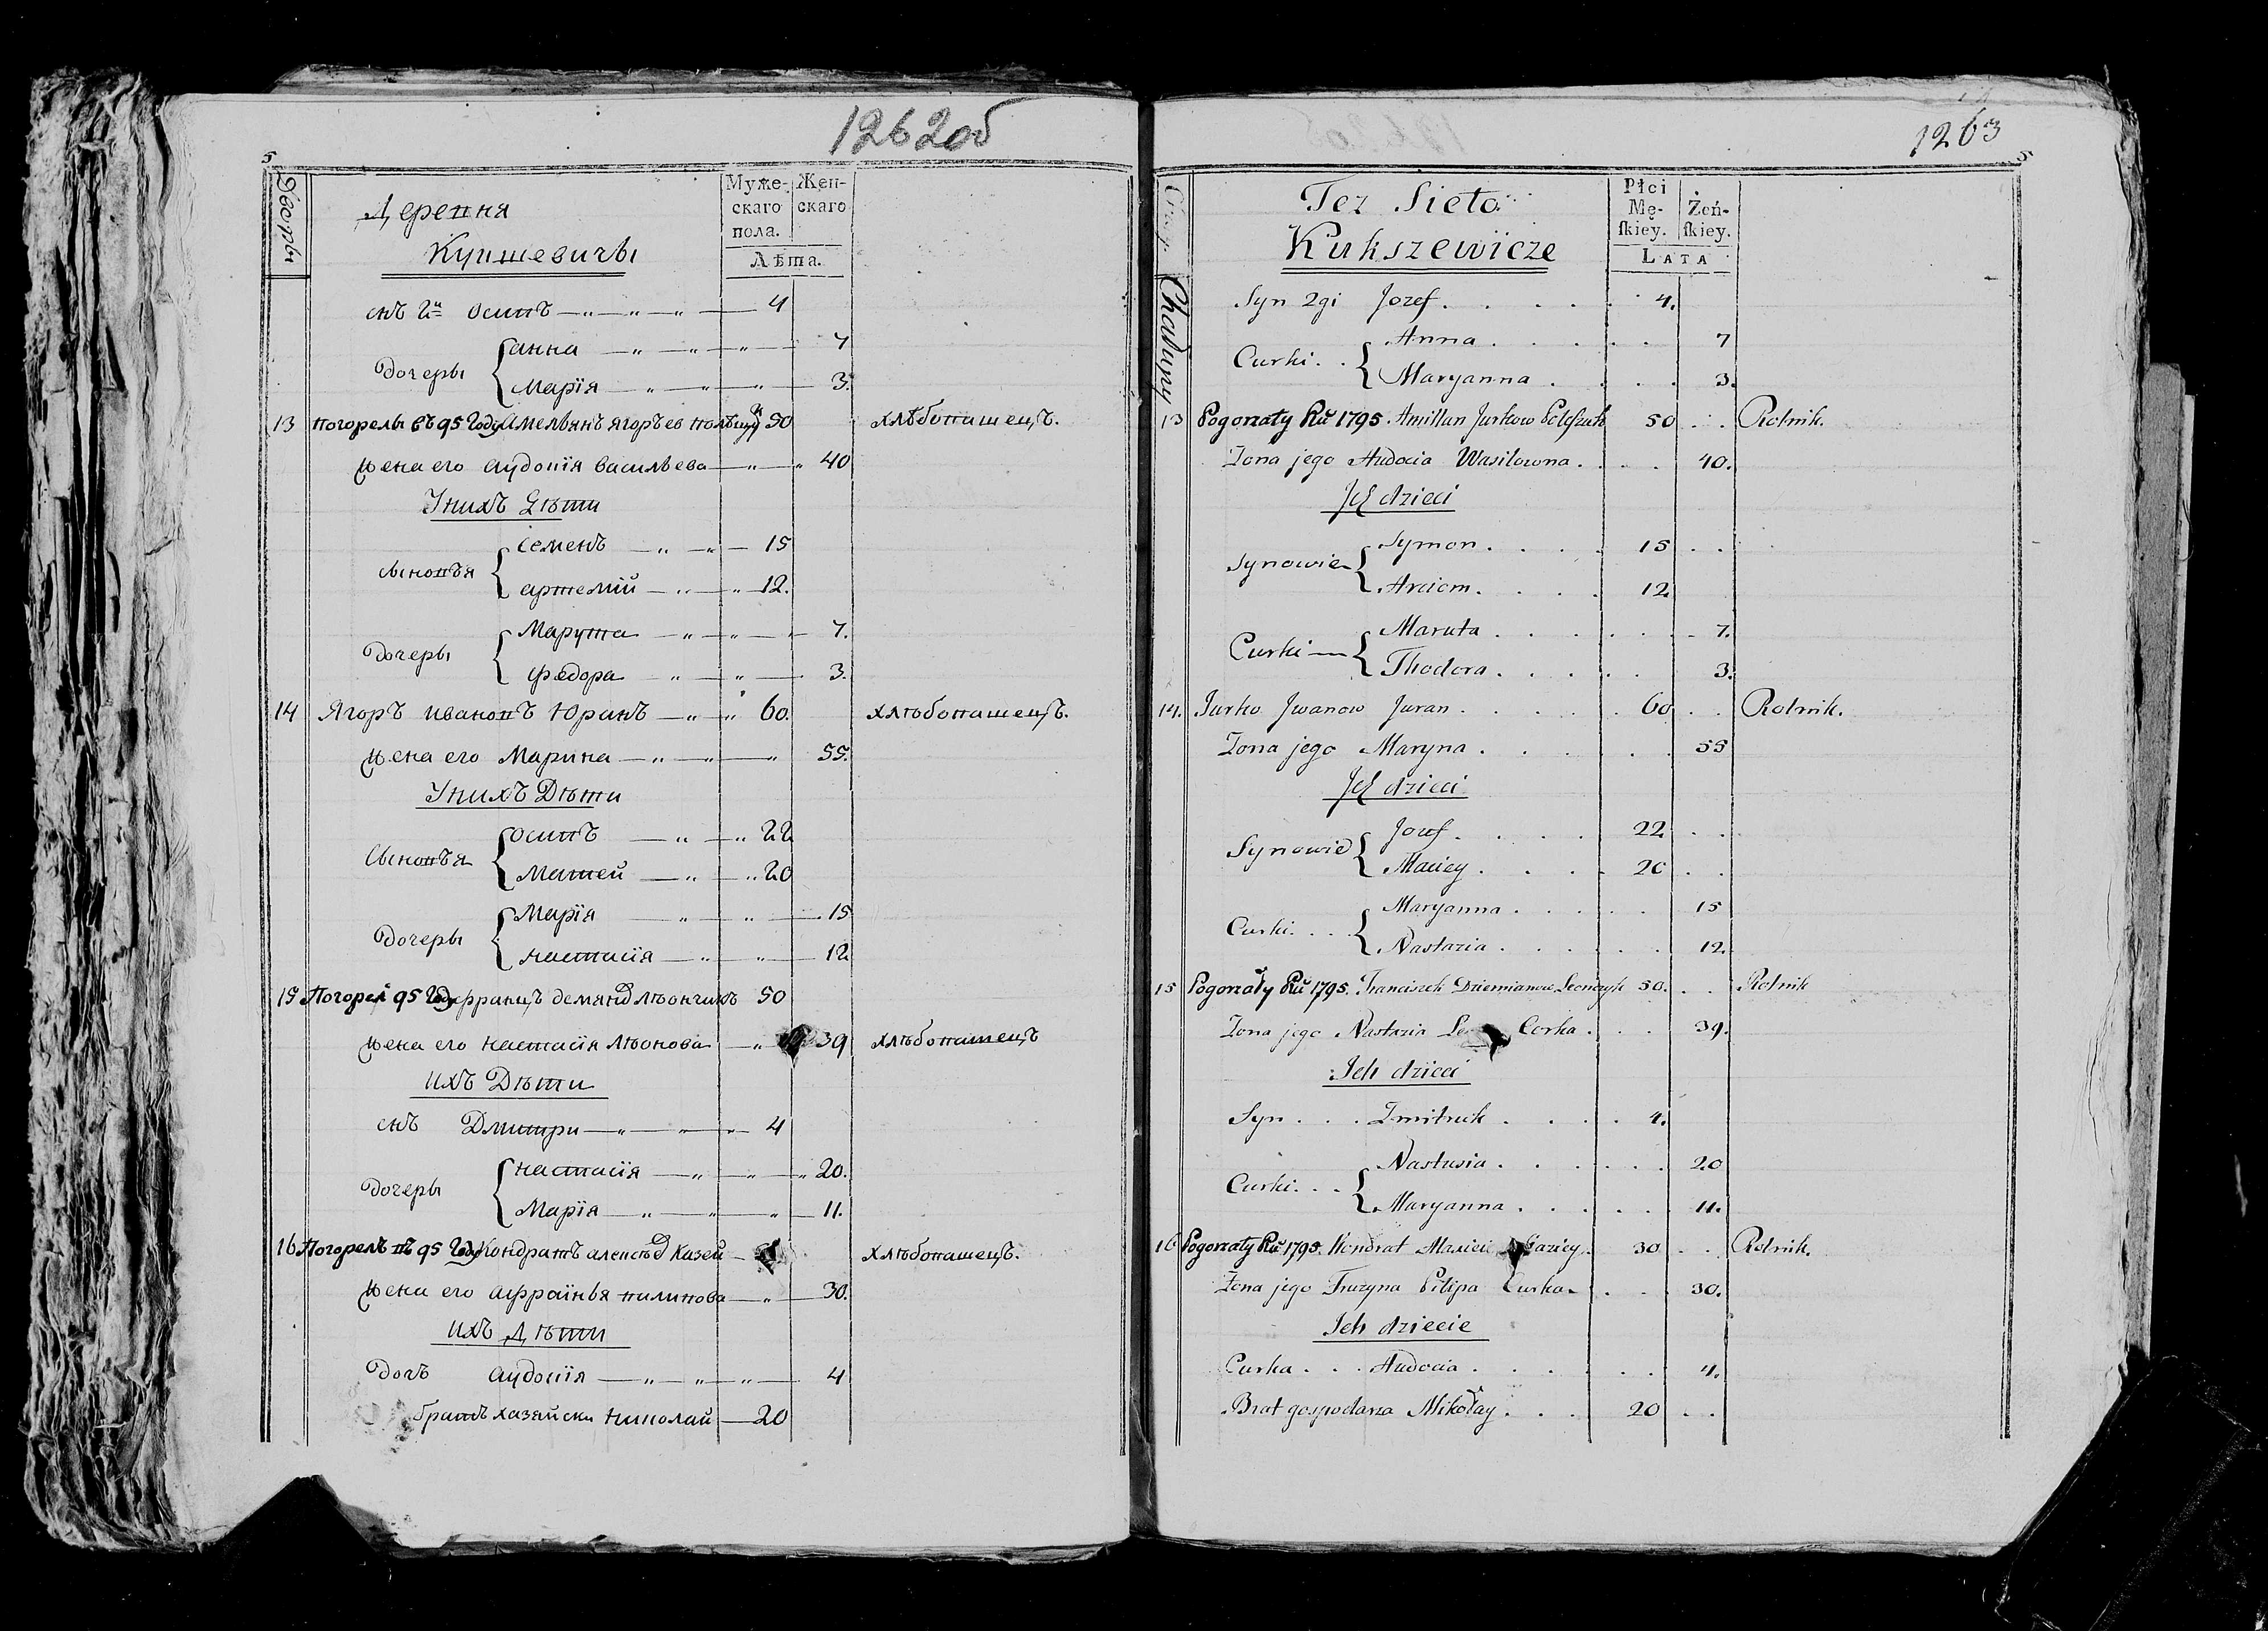 1262об
5
Дворы
Деревня
Муже-
скаго
пола.
Жен-
скаго
Купшевичы
Лѣта.
снъ 2й Осипъ 4
Дочеры
анна 7
Марія 3.
13 погорелы въ 95 Году Амельянъ ягоръев 50 хлѣбопашецъ.
жена его аудоція васильева 40
Унихъ Дѣти
сыновъя
семенъ 15
артемій 12.
Дочеры
Марута 7.
федора 3.
14 Ягоръ ивановъ Юранъ 60. хлѣбопашецъ.
жена его Марина 55.
Унихъ Дѣти
Сыновъя
Осипъ 22
Матей 20
Дочеры
Марія 15
настасія 12
15 Погорел 95 Году францъ демянов лѣончикъ 50
жена его настасія лѣонова 39 хлѣбопашецъ
ихъ Дѣти
снъ Дмитри 4
Дочеры
настасія 20.
Марія 11.
16 Погорелъ въ 95 Году Кондратъ Казей хлѣбопашецъ.
жена его афраінья пилипова 30.
ихъ Дѣти
Дочъ аудоція 4
братъ хазяйски николай 20
1263
5
Tez Sieło
Płci
Mę-
skiey.
Żeń-
skiey.
Kukszewicze
LATA
Chałupy
Syn 2gi Jozef 4.
Curki
Anna 7
Maryanna 3.
13 Pogorzały Ru 1795. Amillan Jurkow 50 Rolnik.
Zona jego Audocia Wasilowna 40.
Ich dzieci
Synowie
Symon 15
Arciom 12
Curki
Maruta 7.
Thodora 3.
14. Jurko Jwanow Juran 60 Rolnik.
Zona jego Maryna 55
Ich dzieci
Synowie
Jozef 22
Maciey 20
Curki
Maryanna 15
Nastazia 12.
15 Pogorzały Ru 1795. Franciszek Dziemianow Leonczyk 50. Rolnik
Zona jego Nastazia Corka 39.
Ich dzieci
Syn Zmitruk 4.
Curki
Nastusia 20
Maryanna 11.
16 Pogorzały Ru 1795. Kondrat Kaziey 30 Rolnik.
Żona jego Fruzyna Pilipa Curka 30.
Ich dziecie
Curka Audocia 4.
Brat gospodarza Mikołay 20